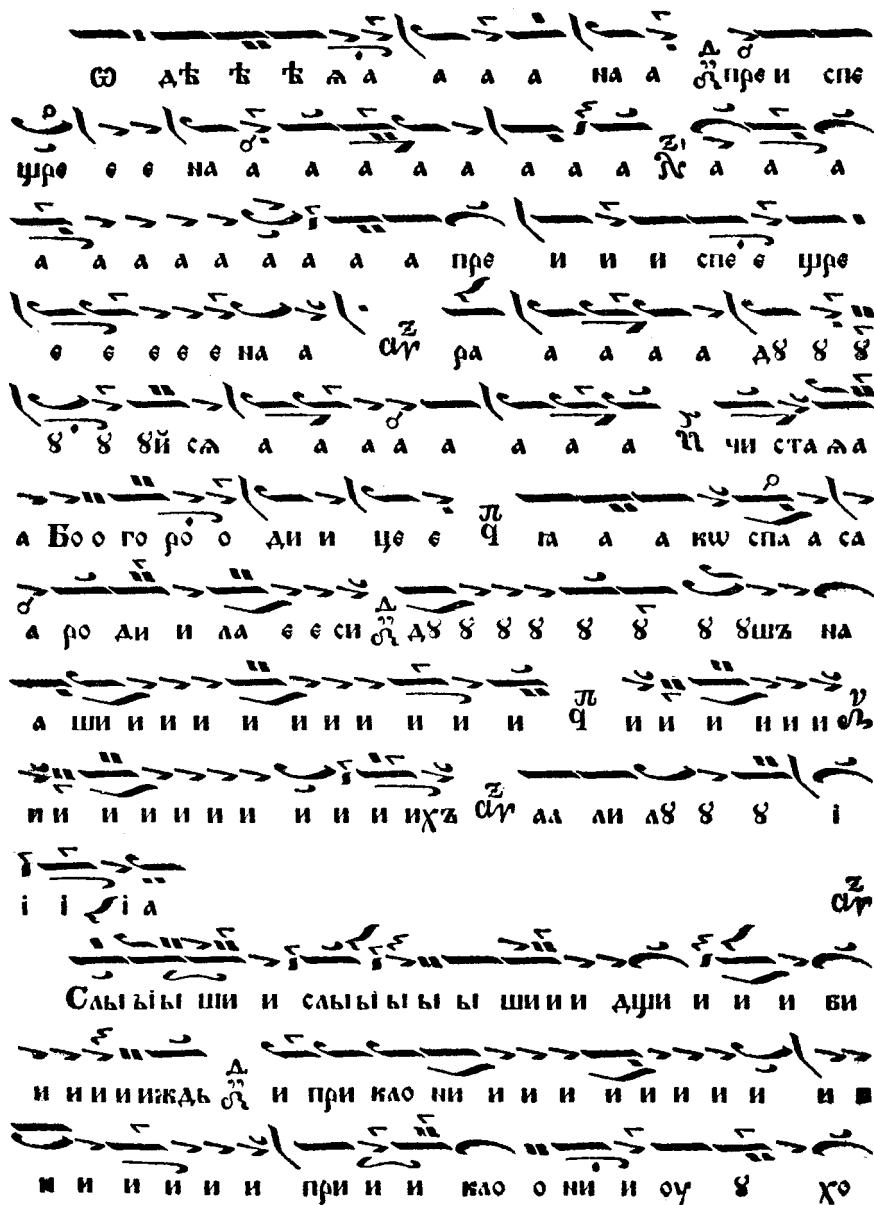 ѡ дѣ ѣ ѣ ѧ а а а а на а пре и спе
щре е е на а а а а а а а а а а а
а а а а а а а а пре и и и спе е щре
е е е е е на а ра а а а а дꙋ ꙋ ꙋ
ꙋ ꙋ ꙋй сѧ а а а а а а а а чи ста ѧ а
а Бо о го ро о ди и це е ꙗ а а кѡ спа а са
а ро ди и ла е е си дꙋ ꙋ ꙋ ꙋ ꙋ ꙋ ꙋ ꙋшъ на
а ши и и и и и и и и и и и и и и и
и и и и и и и и и и ихъ ал ли лꙋ ꙋ ꙋ і
і і і а
Слы ъі ы ши и слы ы ы ы ы ши и и дщи и и и ви
и и и иждь и при кло ни и и и и и и и и и
и и и и и и при и и кло о ни и оу ꙋ хо